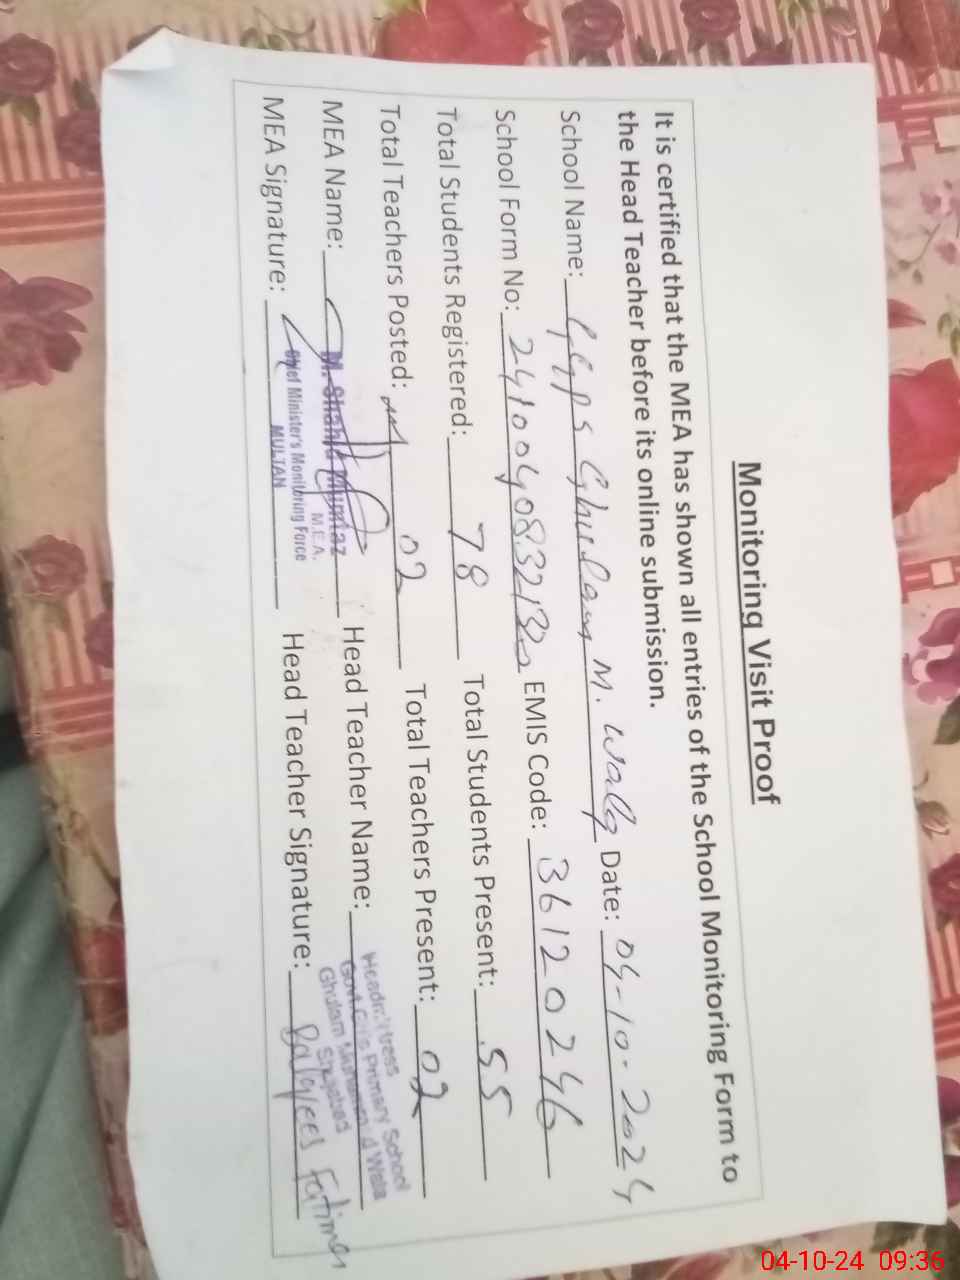 Monitoring Visit Proof
It is certified that the MEA has shown all entries of the School Monitoring Form to
the Head Teacher before its online submission.
School Name: GGPS Ghulam M. Wala Date: 04-10-2024
School Form No: EMIS Code: 36120246
Total Students Registered: 78 Total Students Present: 55
Total Teachers Posted: 02 Total Teachers Present: 02
MEA Name: M. Shahid Mumtaz Head Teacher Name:
M.E.A.
Chief Minister's Monitoring Force
MULTAN
Headmistress
Govt. Girls Primary School
Ghulam Muhammad Wala
Shujabad
MEA Signature: Head Teacher Signature: Balqees Fatima
04-10-24 09:36